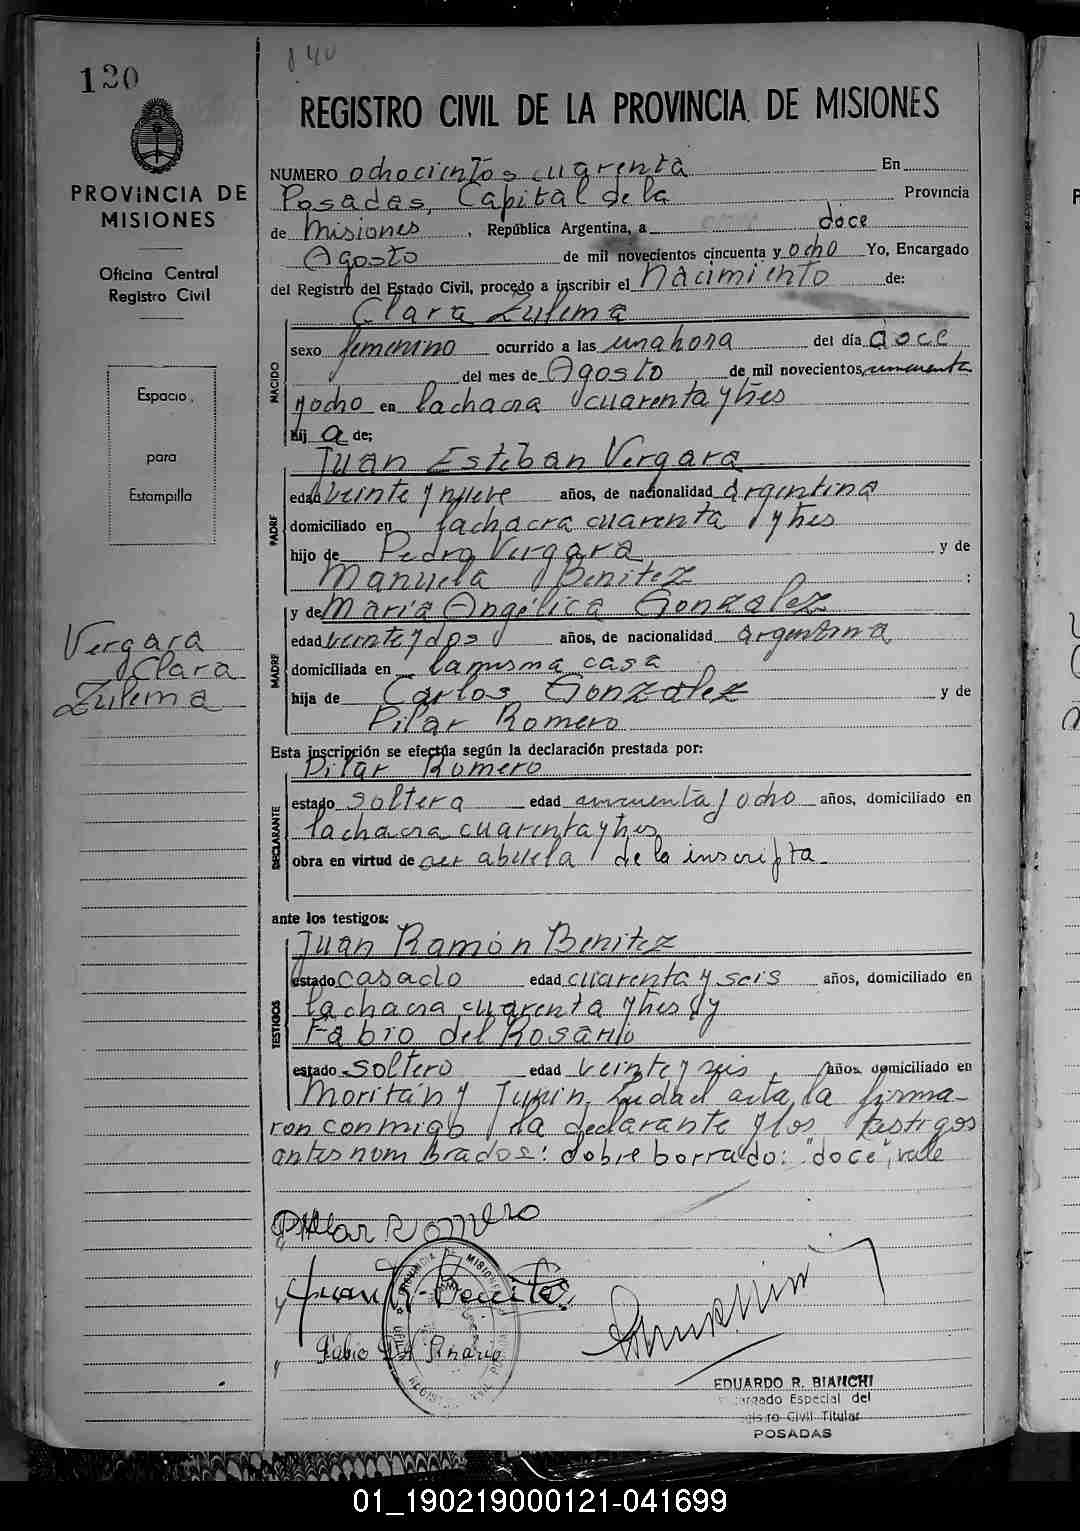 120
840
REGISTRO CIVIL DE LA PROVINCIA DE MISIONES
PROVINCIA DE
MISIONES
Oficina Central
Registro Civil
Espacio
para
Estampilla
Vergara
Clara
Zulema
NUMERO ochocientos cuarenta En
Posadas, Capital de la Provincia
de Misiones, República Argentina, a doce
Agosto de mil novecientos cincuenta y ocho Yo, Encargado
del Registro del Estado Civil, procedo a inscribir el Nacimiento de:
Clara Zulema
NACIDO
sexo femenino ocurrido a las una hora del día doce
del mes de Agosto de mil novecientos cincuenta
y ocho en la chacra cuarenta y tres
hij a de;
Juan Esteban Vergara
PADRE
edad veinte y nueve años, de nacionalidad argentina
domiciliado en la chacra cuarenta y tres
hijo de Pedro Vergara y de
Manuela Benitez ;
y de María Angélica Gonzalez
MADRE
edad veinte y dos años, de nacionalidad argentina
domiciliada en la misma casa
hija de Carlos Gonzalez y de
Pilar Romero
Esta inscripción se efectúa según la declaración prestada por:
Pilar Romero
DECLARANTE
estado soltera edad cincuenta y ocho años, domiciliado en
la chacra cuarenta y tres
obra en virtud de ser abuela de la inscripta.
ante los testigos:
Juan Ramón Benitez
TESTIGOS
estado casado edad cuarenta y seis años, domiciliado en
la chacra cuarenta y tres y
Fabio del Rosario
estado soltero edad veinte y seis años, domiciliado en
Moritán y Junin, Leída el acta, la firma-
ron conmigo la declarante y los testigos
antes nombrados: sobre borrado: "doce", vale
Pilar Romero
Juan R. Benitez
Fabio del Rosario
EDUARDO R. BIANCHI
Encargado Especial del
Registro Civil Titular
POSADAS
01_190219000121-041699